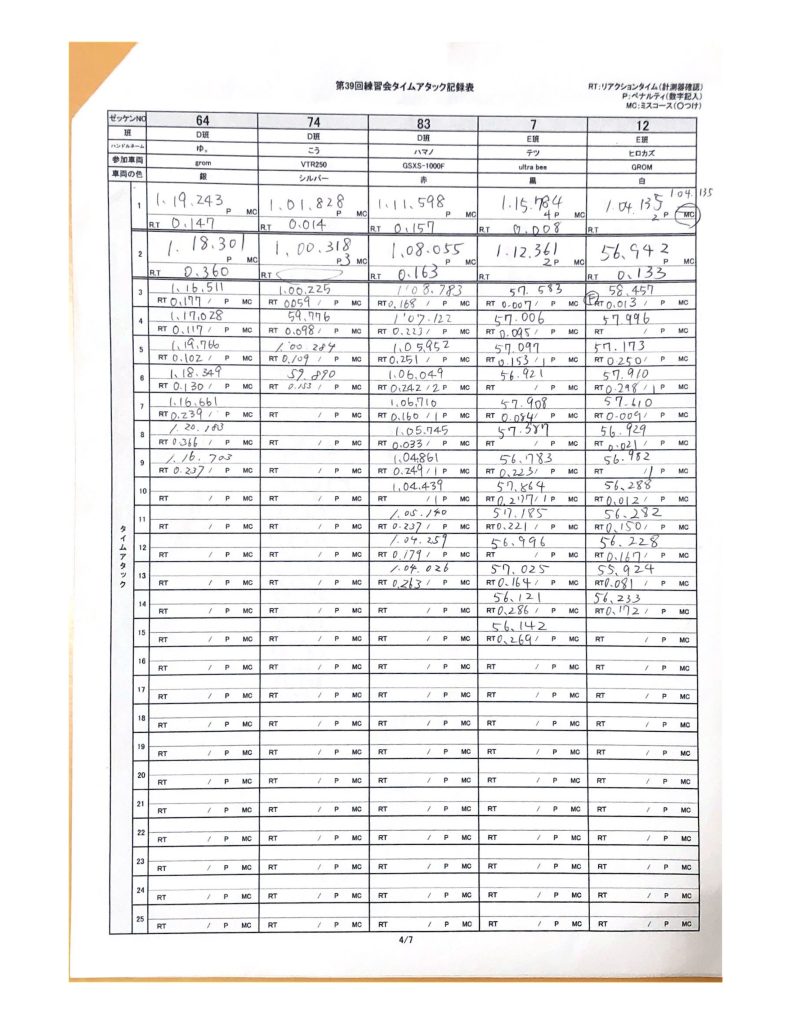 第39回練習会タイムアタック記録表
RT:リアクションタイム(計測器確認)
P:ペナルティ(数字記入)
MC:ミスコース(〇つけ)
ゼッケンNO 64 74 83 7 12
班 D班 D班 D班 E班 E班
ハンドルネーム ゆ。 こう ハマノ テツ ヒロカズ
参加車両 grom VTR250 GSXS-1000F ultra bee GROM
車両の色 銀 シルバー 赤 黒 白
1.04.135
タイムアタック
1 1.19.243 1,01.828 1.11.598 1.15.784 1.04.135
P MC P MC P MC 4 P MC 2 P MC
RT 0.147 RT 0.014 RT 0.157 RT 0.008 RT
2 1.18.301 1,00.318 1,08.055 1.12.361 56.942
P MC P3 MC P MC 2P MC P MC
RT 0.360 RT RT 0.163 RT RT 0.133
3 1,16,511 1,00.225 1'08.783 57.583 58.457
RT 0,177 / P MC RT 0059 / P MC RT 0,168 / P MC RT 0.007 / P MC F RT 0.013 / P MC
4 1,17,028 59.776 1'07.122 57.006 57.996
RT 0.117 / P MC RT 0.098 / P MC RT 0.223 / P MC RT 0.095 / P MC RT / P MC
5 1,19,766 1.00.284 1,05,952 57.097 57.173
RT 0.102 / P MC RT 0.109 / P MC RT 0.251 / P MC RT 0.153 / 1 P MC RT 0.250 / P MC
6 1,18.349 59.890 1,06,049 56.921 57.910
RT 0.130 / P MC RT 0.153 / P MC RT 0.242 / 2 P MC RT / P MC RT 0.298 / 1 P MC
7 1,16.661 1,06,710 57.908 57.610
RT 0.239 / P MC RT / P MC RT 0.160 / 1 P MC RT 0.084 / P MC RT 0.009 / P MC
8 1.20.183 1,05.745 57.387 56.929
RT 0.366 / P MC RT / P MC RT 0.033 / P MC RT / P MC RT 0.021 / P MC
9 1.16.703 1,04.861 56.783 56.982
RT 0.237 / P MC RT / P MC RT 0.249 / 1 P MC RT 0.223 / P MC RT / 1 P MC
10 1,04.439 57.864 56.288
RT / P MC RT / P MC RT / 1 P MC RT 0.277 / 1 P MC RT 0.012 / P MC
11 1.05.140 57.185 56.282
RT / P MC RT / P MC RT 0.237 / P MC RT 0.221 / P MC RT 0.150 / P MC
12 1.04.259 56.996 56.228
RT / P MC RT / P MC RT 0.179 / P MC RT / P MC RT 0.167 / P MC
13 1.04.026 57.025 55.924
RT / P MC RT / P MC RT 0.263 / P MC RT 0.164 / P MC RT 0.081 / P MC
14 56.121 56.233
RT / P MC RT / P MC RT / P MC RT 0.286 / P MC RT 0.172 / P MC
15 56.142
RT / P MC RT / P MC RT / P MC RT 0.269 / P MC RT / P MC
16
RT / P MC RT / P MC RT / P MC RT / P MC RT / P MC
17
RT / P MC RT / P MC RT / P MC RT / P MC RT / P MC
18
RT / P MC RT / P MC RT / P MC RT / P MC RT / P MC
19
RT / P MC RT / P MC RT / P MC RT / P MC RT / P MC
20
RT / P MC RT / P MC RT / P MC RT / P MC RT / P MC
21
RT / P MC RT / P MC RT / P MC RT / P MC RT / P MC
22
RT / P MC RT / P MC RT / P MC RT / P MC RT / P MC
23
RT / P MC RT / P MC RT / P MC RT / P MC RT / P MC
24
RT / P MC RT / P MC RT / P MC RT / P MC RT / P MC
25
RT / P MC RT / P MC RT / P MC RT / P MC RT / P MC
4/7